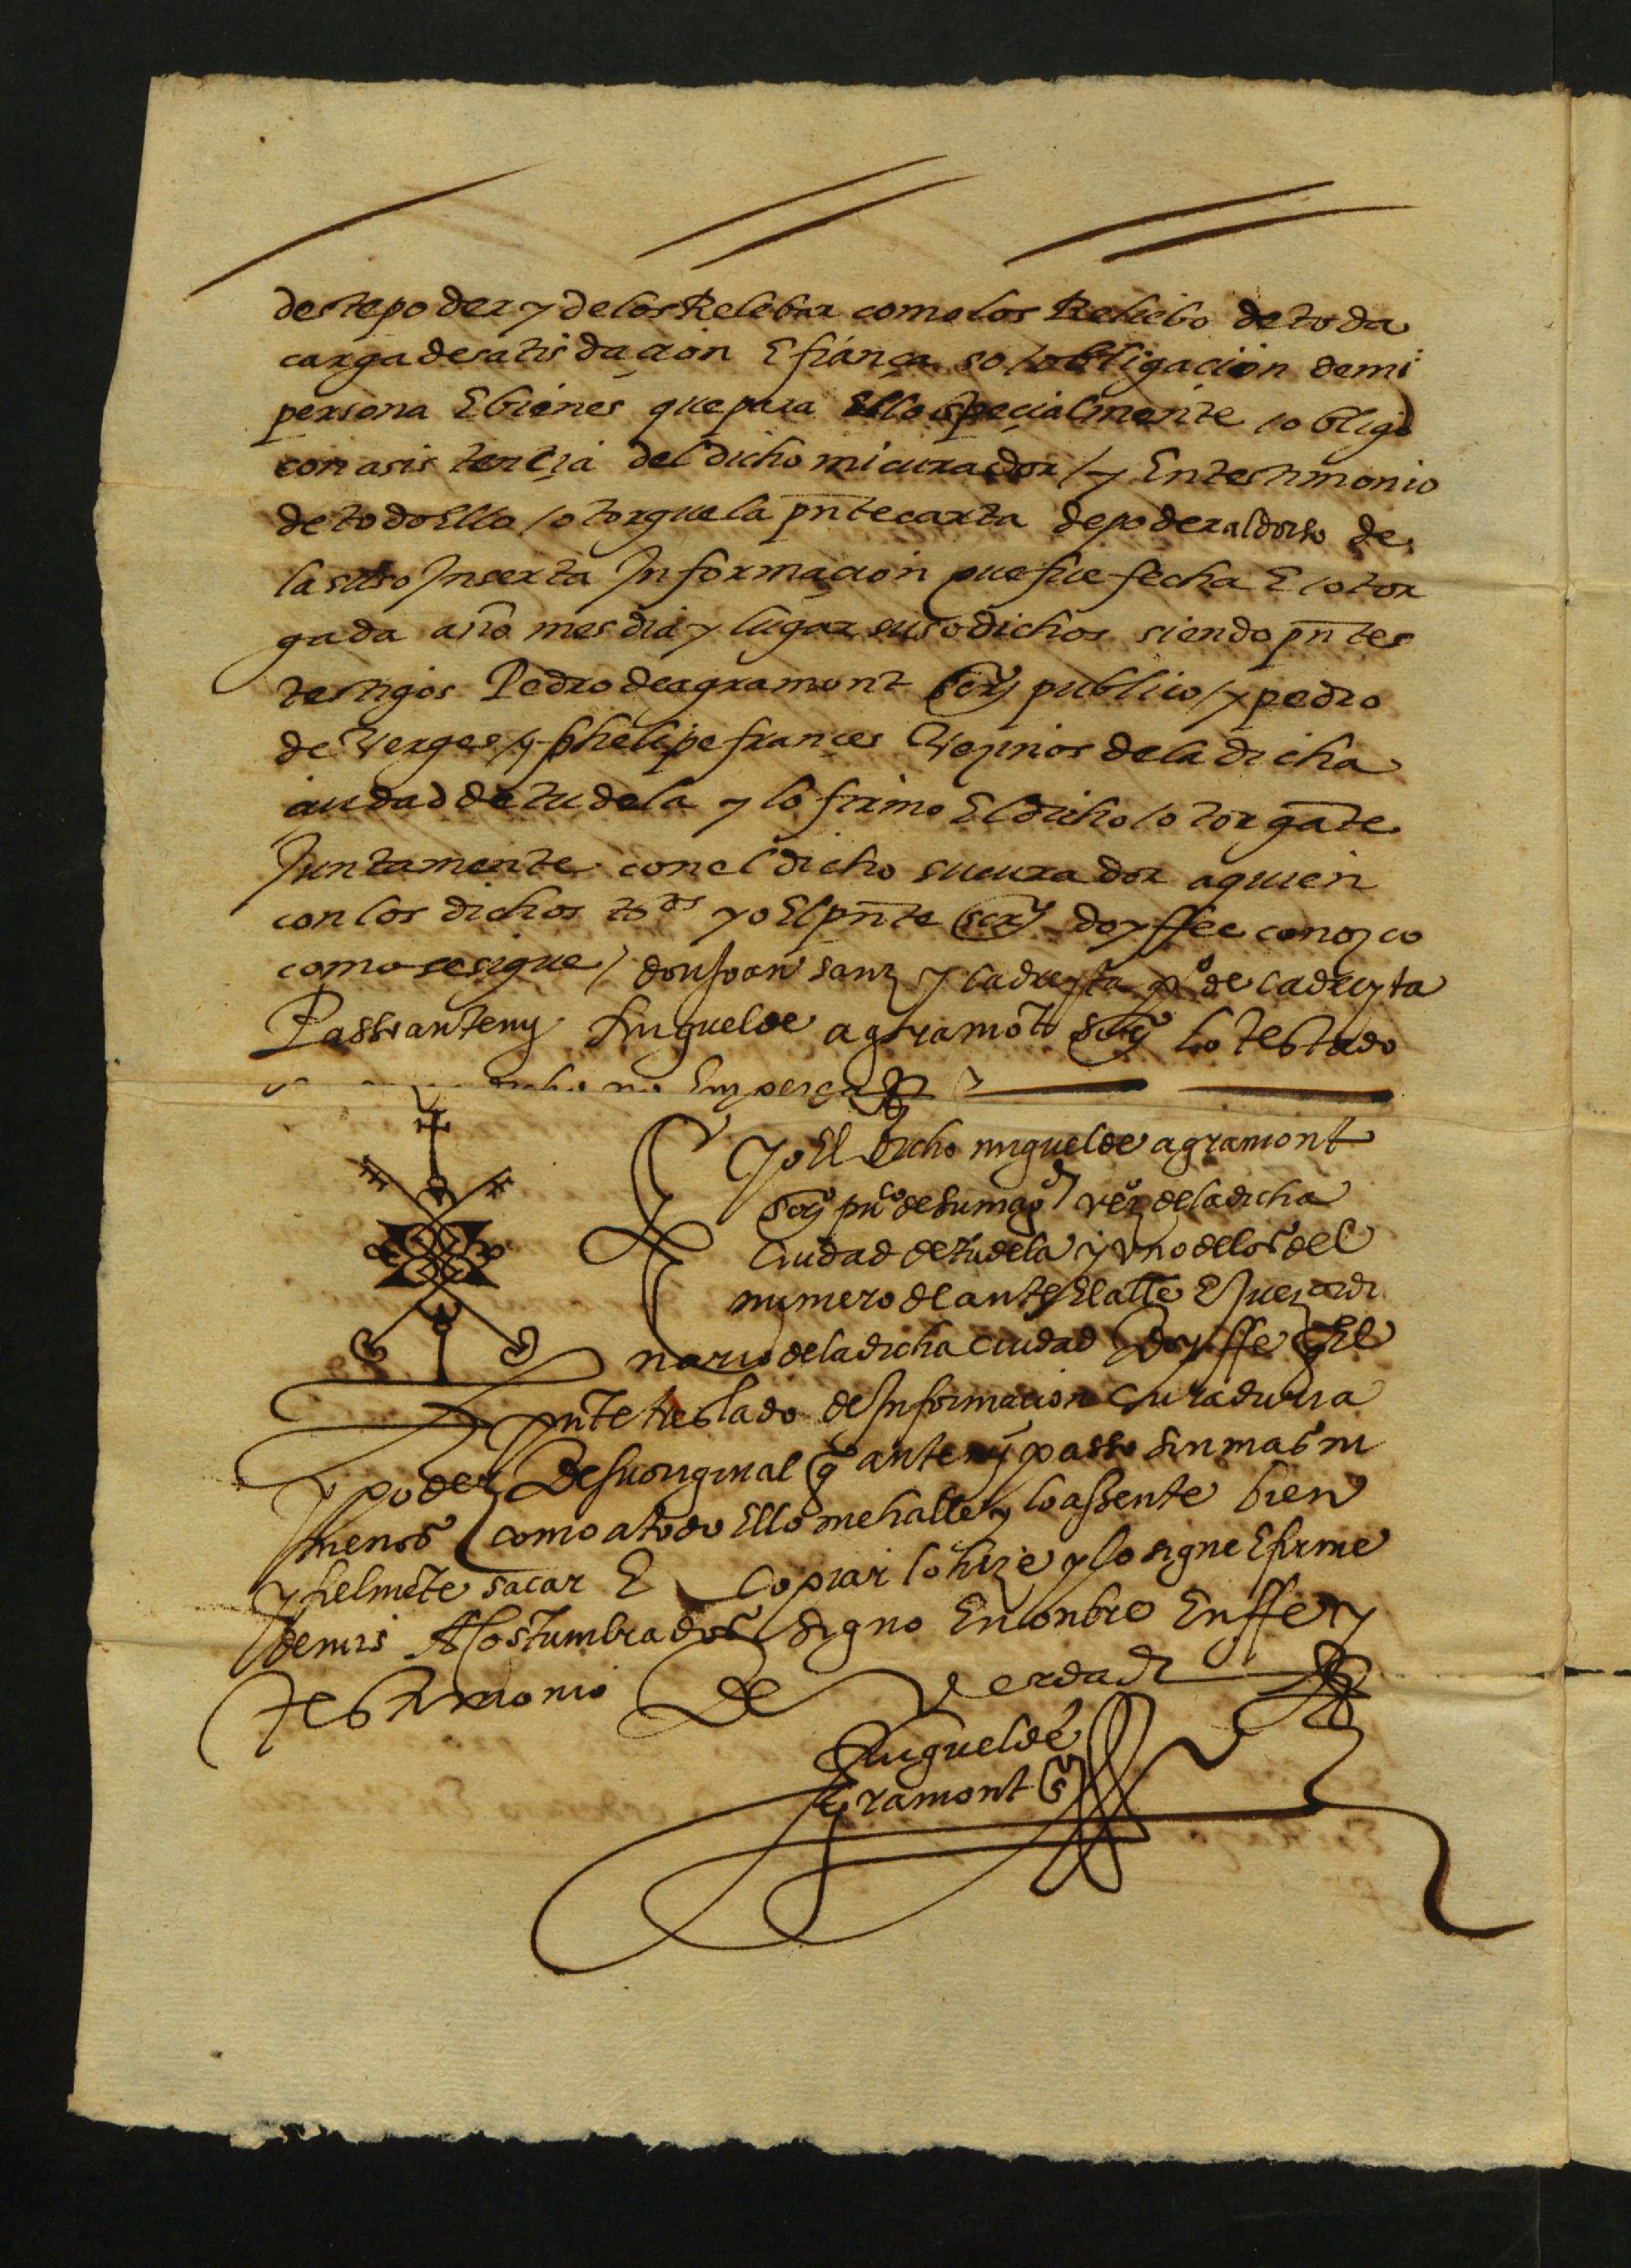 deste poder y de los Relebar como los Reliebo de toda
carga de satisdaçion E fiança so lobligaçion de mi
persona E bienes que para Ello speçialmente lobligo
con asistençia del dicho mi curador / y En testimonio
de todo Ello lotorgue la pnte carta de poder al dorso de
la suso Inserta Informaçion que fue fecha E lotor
gada año mes dia y lugar suso dichos siendo pntes
testigos Pedro de agramont scry publico / y pedro
de Verges / y phelipe françes Vezinos de la dicha
ciudad de tudela y lo firmo El dicho lotorgate
Juntamente con el dicho su curador a quien
con los dichos tos yo El pnte scry doy ffee conozco
como se sigue / don Joan sanz y cadreyta po de cadreyta
Passo ante my Miguel de agramot scry lo testado
dicho no Empezca
Yo El dicho miguel de agramont
scry puco de su magd vezo de la dicha
Ciudad de tudela y vno de los del
numero de ante El alle E Juez ordi
nario de la dicha ciudad doy ffe q El
pnte treslado de Informacion Curaduria
y poder De su original q ante my passo sin mas ni
menos como a todo Ello me halle y lo assente bien
y fielmete sacar E Copiar lo hize y lo signe E firme
de mis Acostumbrados signo E nonbre En ffe y
testimonio De Verdad
Miguel de
Agramont s